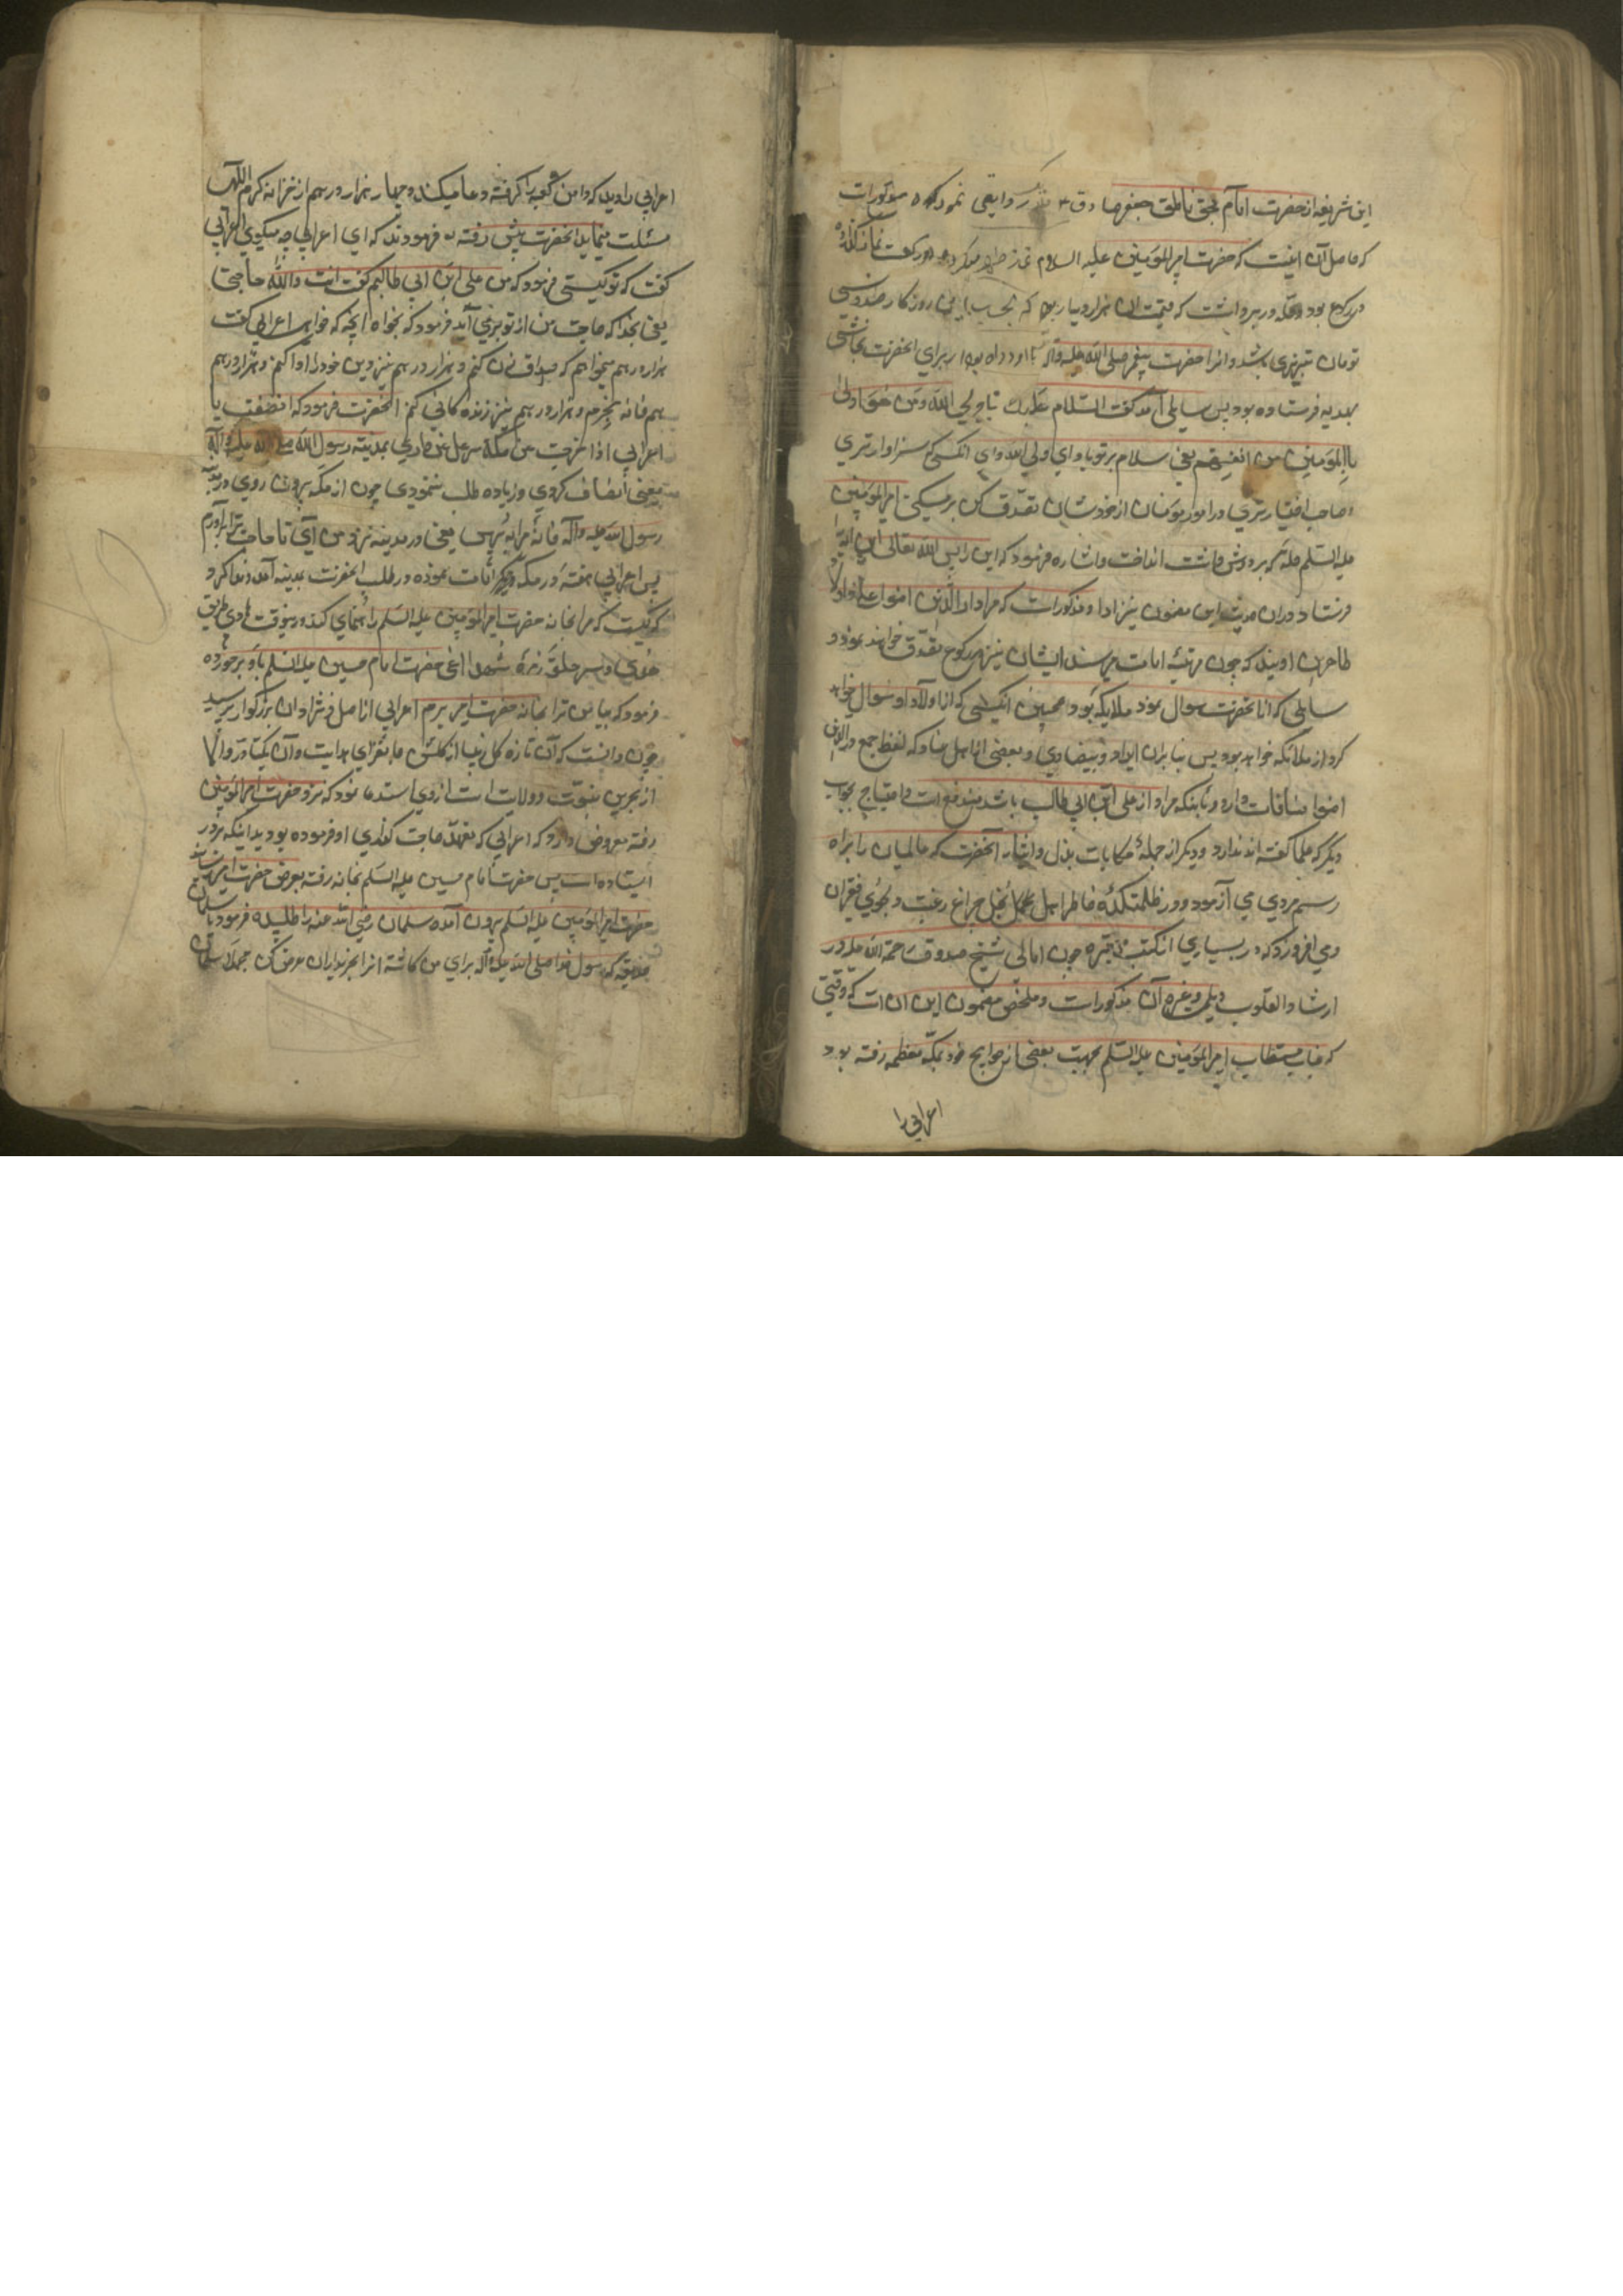 این شریفه از حضرت امام بحق ناطق جعفر صادق ع روایتی نموده
که حاصل آن اینست که حضرت امیرالمؤمنین علیه السلام نماز
در رکوع بود و حله در بر داشت که قیمت آن هزار دینار بود که بحساب این روزکار
تومان تبریزی باشد و انرا حضرت پیغمبر صلی الله علیه وآله برای انحضرت نجاشی
بهدیه فرستاده بود پس سایلی آمد کفت السّلام علیک یا ولی الله و من هو اولی
بالمؤمنین من انفسهم یعنی سلام بر تو باد ای ولی الله و ای انکسی که سزاوارتری
و صاحب اختیارتری در امور مومنان از خودشان تصدّق کن بر مسکین امیرالمؤمنین
علیه السّلم حله که بر دوش داشت انداخت و اشاره فرمود که این را پس الله تعالی این آیه
فرستاد و در ان حدیث این مضمون نیز ادا و مذکورات که مراد از الّذین امنوا علی و اولاد
طاهرین اویند که چون مرتبهٔ امامت میرسند ایشان نیز در رکوع تصدّق خواهند نمود و
سایلی که از انحضرت سوال نمود ملایکه بود و همچنین انکسی که از اولاد او سوال خواهد
کرد از ملائکه خواهد بود پس بنابران ایراد بیضاوی و بعضی از اهل عناد که لفظ جمع در الذین
امنوا منافات دارد و بانکه مراد از علی ابن ابی طالب باشد مندفع است و احتیاج بجواب
دیکر که علما کفته اند ندارد و دیکر از جملهٔ حکایات بذل و ایثار آنحضرت که عالمیان را براه
رسم مردی می آزمود و در ظلمتکدهٔ خاطر اهل بخل چراغ رغبت دلجوئی فقیران
می افروزد که در بسیاری از کتب معتبره چون امالی شیخ صدوق رحمة الله علیه و در
ارشاد القلوب دیلمی و غیره آن مذکورات و ملخص مضمون این ان است که وقتی
که جناب مستطاب امیرالمؤمنین علیه السّلم بجهت بعضی از حوایج خود بمکّه معظمه رفته بود
اعرابی را
اعرابی را دید که دامن کعبه را کرفته دعا میکند و چهار هزار درهم از خزانه کرم اللهی
مسئلت مینماید انحضرت پیش رفته فرمودند که ای اعرابی چه میکوئی اعرابی
کفت که تو کیستی فرمود که من علی ابن ابی طالبم کفت انت والله حاجتی
یعنی بخدا که حاجت من از تو برمی آید فرمود که بخواه انچه که خواهی اعرابی کفت
هزار درهم میخواهم که صداق زن کنم و هزار درهم نیز دین خود را ادا کنم و هزار درهم
هم خانه بخرم و هزار درهم نیز زنده کانی کنم انحضرت فرمود که انصفت یا
اعرابی اذا خرجت من مکّة سل عن داری بمدینة رسول الله صلی الله علیه وآله
یعنی انصاف کردی و زیاده طلب ننمودی چون از مکّه بیرون روی در مدینه
رسول الله علیه وآله خانهٔ مرا بپرس یعنی در مدینه نزد من آی تا حاجت ترا برآورم
پس اعرابی هفته در مکّه دیکر اقامت نموده در طلب انحضرت بمدینه آمد و ندا کرد
که کیست که مرا بخانه حضرت امیرالمؤمنین علیه السّلم راهنمای کند در نیوقت هادی طریق
هُدی و سر حلقهٔ زمرهٔ شهدا اعنی حضرت امام حسین علیه السّلم باو برخورده
فرمود که بیا من ترا بخانه حضرت امیر برم اعرابی از اصل و نژاد ان بزرکوار پرسید
چون دانست که آن تازه کل زیبا از کلشن هدایت و آن یکتا درّ والا
از بحرین نبوّت و ولایت است از وی استدعا نمود که نزد حضرت امیرالمؤمنین
رفته معروض دارد که اعرابی که تعهّد حاجت کذاری او فرموده بودید اینکه بر در
ایستاده است پس حضرت امام حسین علیه السّلم بخانه رفته بعرض حضرت امیر رسانید
حضرت امیرالمؤمنین علیه السّلم بیرون آمده سلمان رضی الله عنه را طلبیده فرمود یا سلمان
حدیقه که رسول خدا صلی الله علیه وآله برای من کاشته انرا بخریداران عرض کن مجملا سلمان